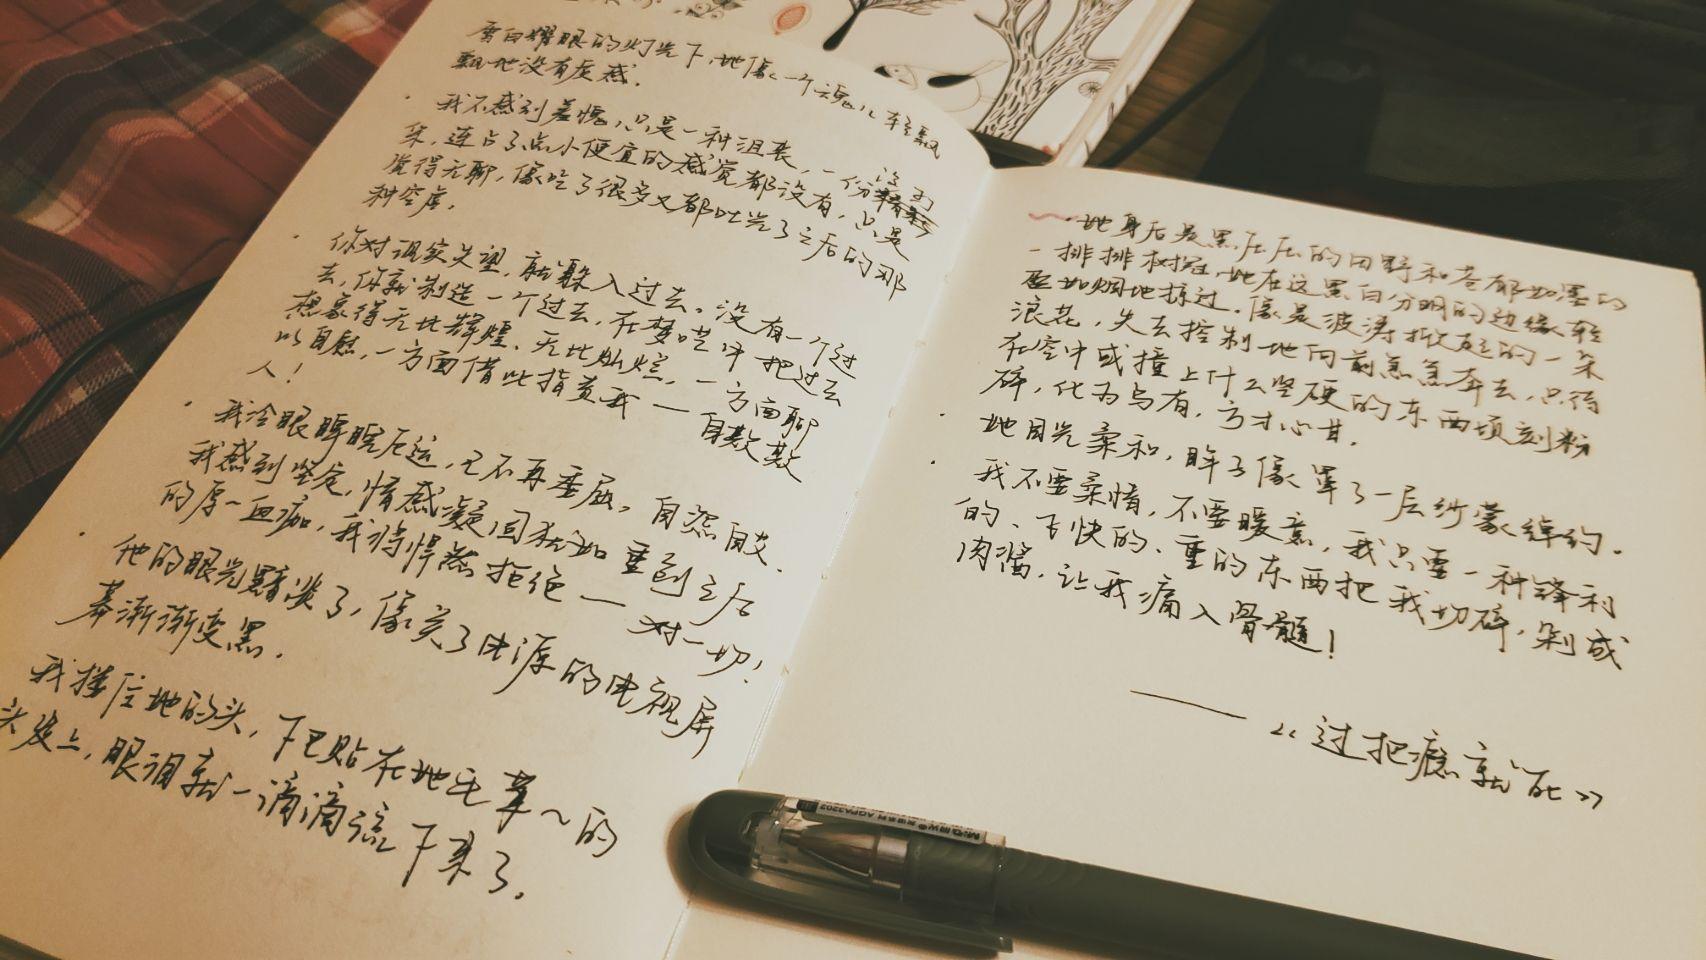 雪白耀眼的灯光下,她像一个魂儿轻飘
飘地没有质感.
· 我不感到羞愧,只是一种沮丧,一份
来,连占了点小便宜的感觉都没有,只是
觉得无聊,像吃了很多又都吐光了之后的那
种空虚.
· 你对现实失望,就躲入过去。没有一个过
去,你就制造一个过去,在梦呓中把过去
想象得无比辉煌、无比灿烂,一方面聊
以自慰,一方面借此指责我——自欺欺
人!
· 我冷眼睥睨厄运,已不再委屈,自怨自艾.
我感到坚定,情感凝固犹如重创之后
的厚厚血痂,我将悍然拒绝——对一切!
· 他的眼光黯淡了,像关了电源的电视屏
幕渐渐变黑.
我搂住她的头,下巴贴在她毛茸~的
头发上,眼泪就一滴滴流下来了.
· 她身后是黑压压的田野和苍郁如墨的
一排排树冠,她在这黑白分明的边缘轻
盈如烟地掠过.像是波涛掀起的一朵
浪花,失去控制地向前急急奔去,只待
在空中或撞上什么坚硬的东西顷刻粉
碎,化为乌有,方才心甘.
· 她目光柔和,眸子像罩了一层纱蒙绰约.
· 我不要柔情,不要暖意,我只要一种锋利
的、飞快的、重的东西把我切碎,剁成
肉酱,让我痛入骨髓!
——《过把瘾就死》
M&G晨光 AGPA3202